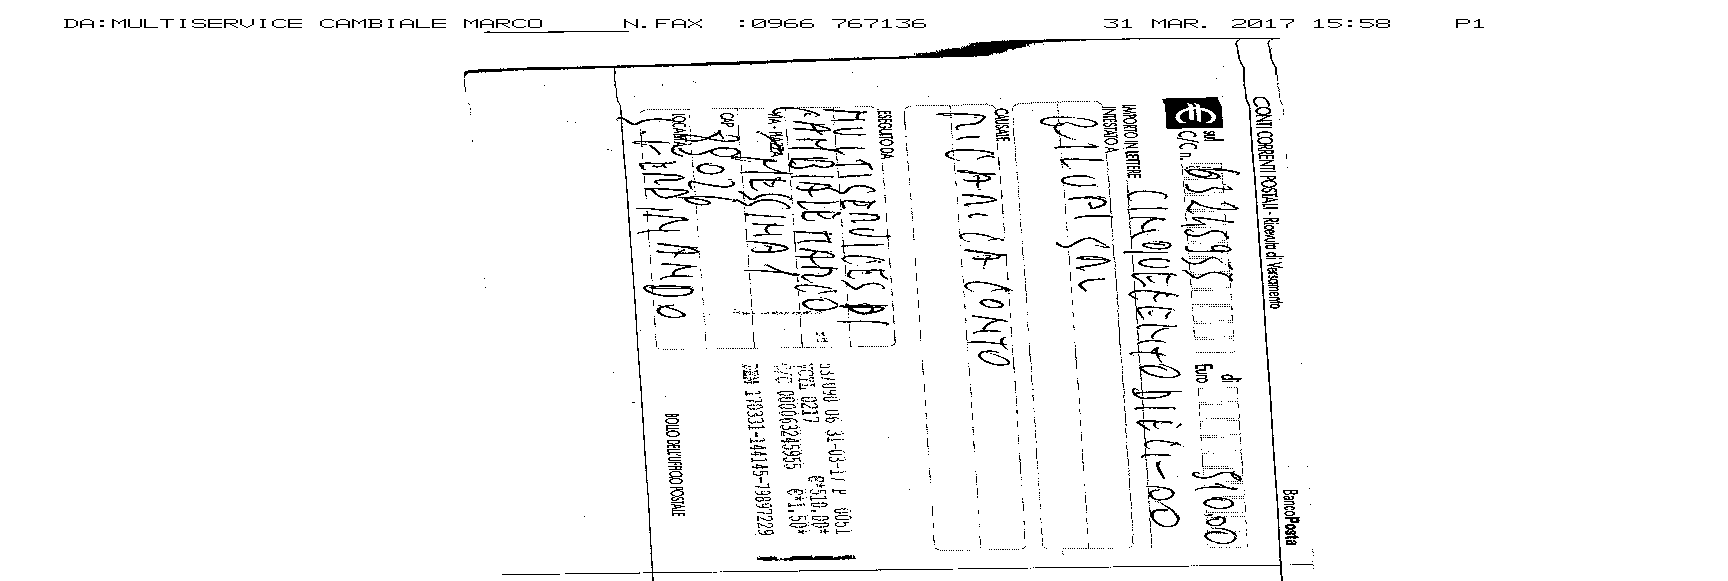 DA:MULTISERVICE CAMBIALE MARCO N.FAX :0966 767136 31 MAR. 2017 15:58 P1
CONTI CORRENTI POSTALI - Ricevuta di Versamento BancoPosta
€ sul C/C n. 63245955 di Euro 510,00
IMPORTO IN LETTERE CINQUECENTODIECI-00
INTESTATO A
BILUPI SRL
CAUSALE
RICARICA CONTO
ESEGUITO DA
MULTISERVICES DI
CAMBIALE MARCO
VIA - PIAZZA
MESSINA 1
CAP
LOCALITÀ
S. FERDINANDO
06 31-03-17 P 0051
0217 €*510,00*
C/C 000063245955 €*1,50*
170331-144145-79897229
BOLLO DELL'UFFICIO POSTALE